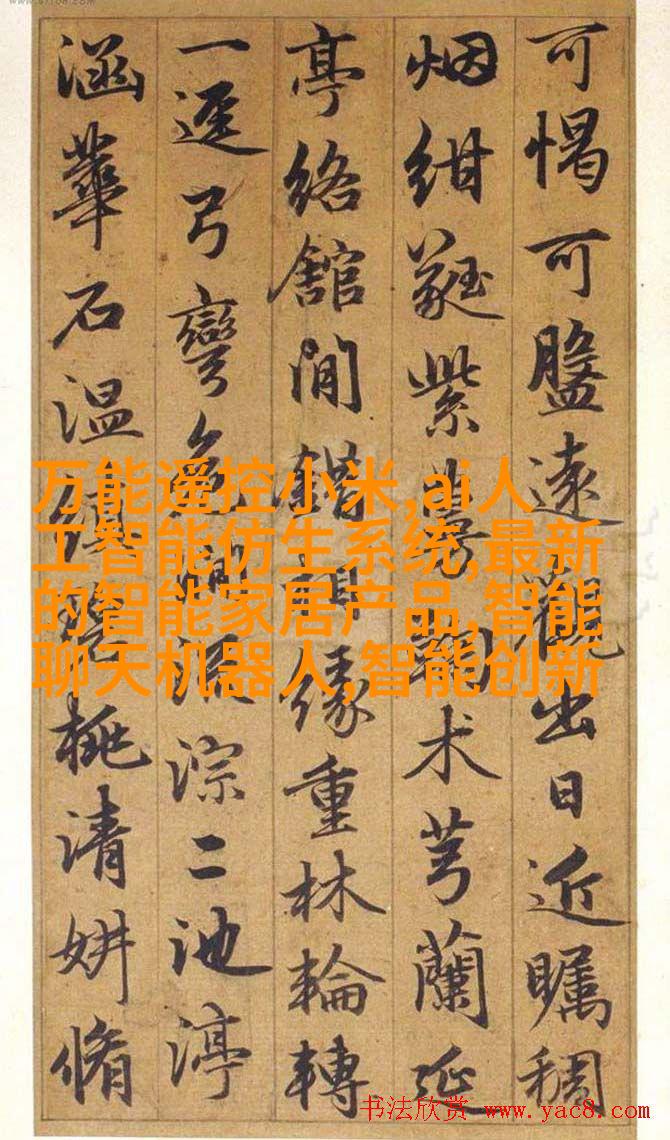 www.yac8.com
可愒可盤遠觀出日近矚稠
烟紺蕤紫术芎蘭延
亭絡館間錯緣重林輪轉
一逕弓彎淙二池渟
涵華石温桃清妍脩
万能遥控小米,ai人
工智能仿生系统,最新
的智能家居产品,智能
聊天机器人,智能创新
书法欣赏 www.yac8.com